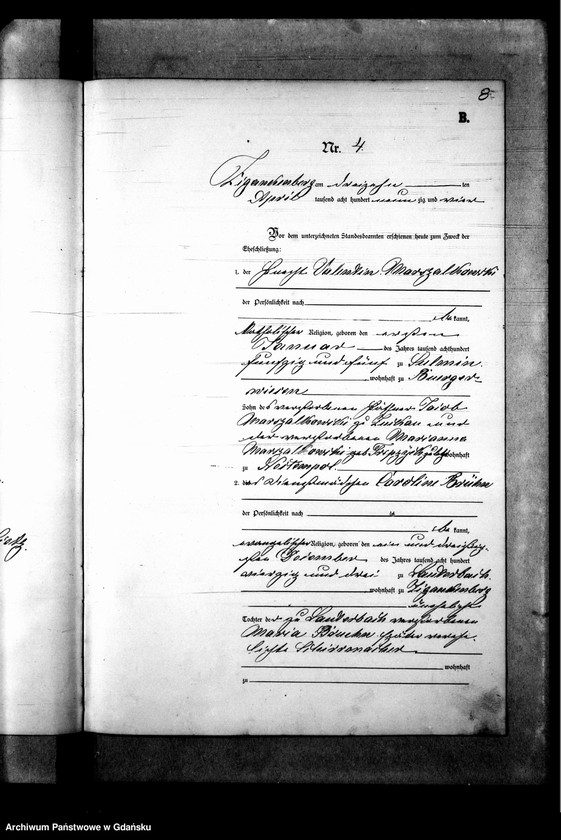 8.
B.
Nr. 4
Zigankenberg am dreizehn ten
April tausend acht hundert neun zig und vier
Vor dem unterzeichneten Standesbeamten erschienen heute zum Zweck der
Eheschließung:
1. der Knecht Valentin Marszalkowski
der Persönlichkeit nach
be kannt,
katholischer Religion, geboren den ersten
Januar des Jahres tausend achthundert
fünfzig und fünf zu
wohnhaft zu Bürger-
wiesen
Sohn des verstorbenen Jacob
Marszalkowski zu und
der verstorbenen Marianna
Marszalkowski geb. wohnhaft
zu
2. das Dienstmädchen Caroline
der Persönlichkeit nach
be kannt,
evangelischer Religion, geboren den ein und dreißig-
sten Dezember des Jahres tausend acht hundert
vierzig und drei zu Lauterbach
wohnhaft zu Zigankenberg
Tochter der zu Lauterbach verstorbenen
Maria später verehe-
lichte
wohnhaft
zu
Archiwum Państwowe w Gdańsku